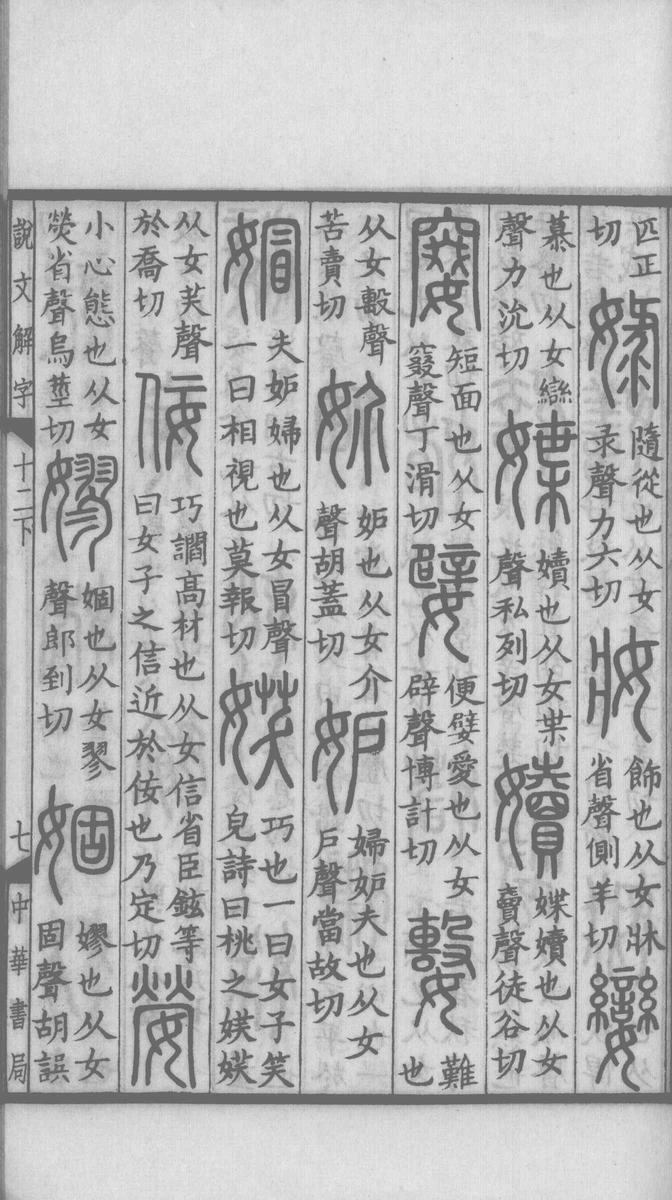 匹正
切
娽
隨從也从女
录聲力六切
妝
飾也从女牀
省聲側羊切
孌
慕也从女䜌
聲力沇切
媟
嬻也从女枼
聲私列切
嬻
媟嬻也从女
𧶠聲徒谷切
㜘
短面也从女
窡聲丁滑切
嬖
便嬖愛也从女
辟聲博計切
難
也
从女毄聲
苦賣切
妎
妒也从女介
聲胡蓋切
妒
婦妒夫也从女
戶聲當故切
媢
夫妒婦也从女冒聲
一曰相視也莫報切
𡝩
巧也一曰女子笑
皃詩曰桃之𡝩𡝩
从女芺聲
於喬切
佞
巧讇高材也从女信省臣鉉等
曰女子之信近於佞也乃定切
嫈
小心態也从女
熒省聲烏莖切
嫪
婟也从女翏
聲郎到切
婟
嫪也从女
固聲胡誤
說文解字
十二下
七
中華書局